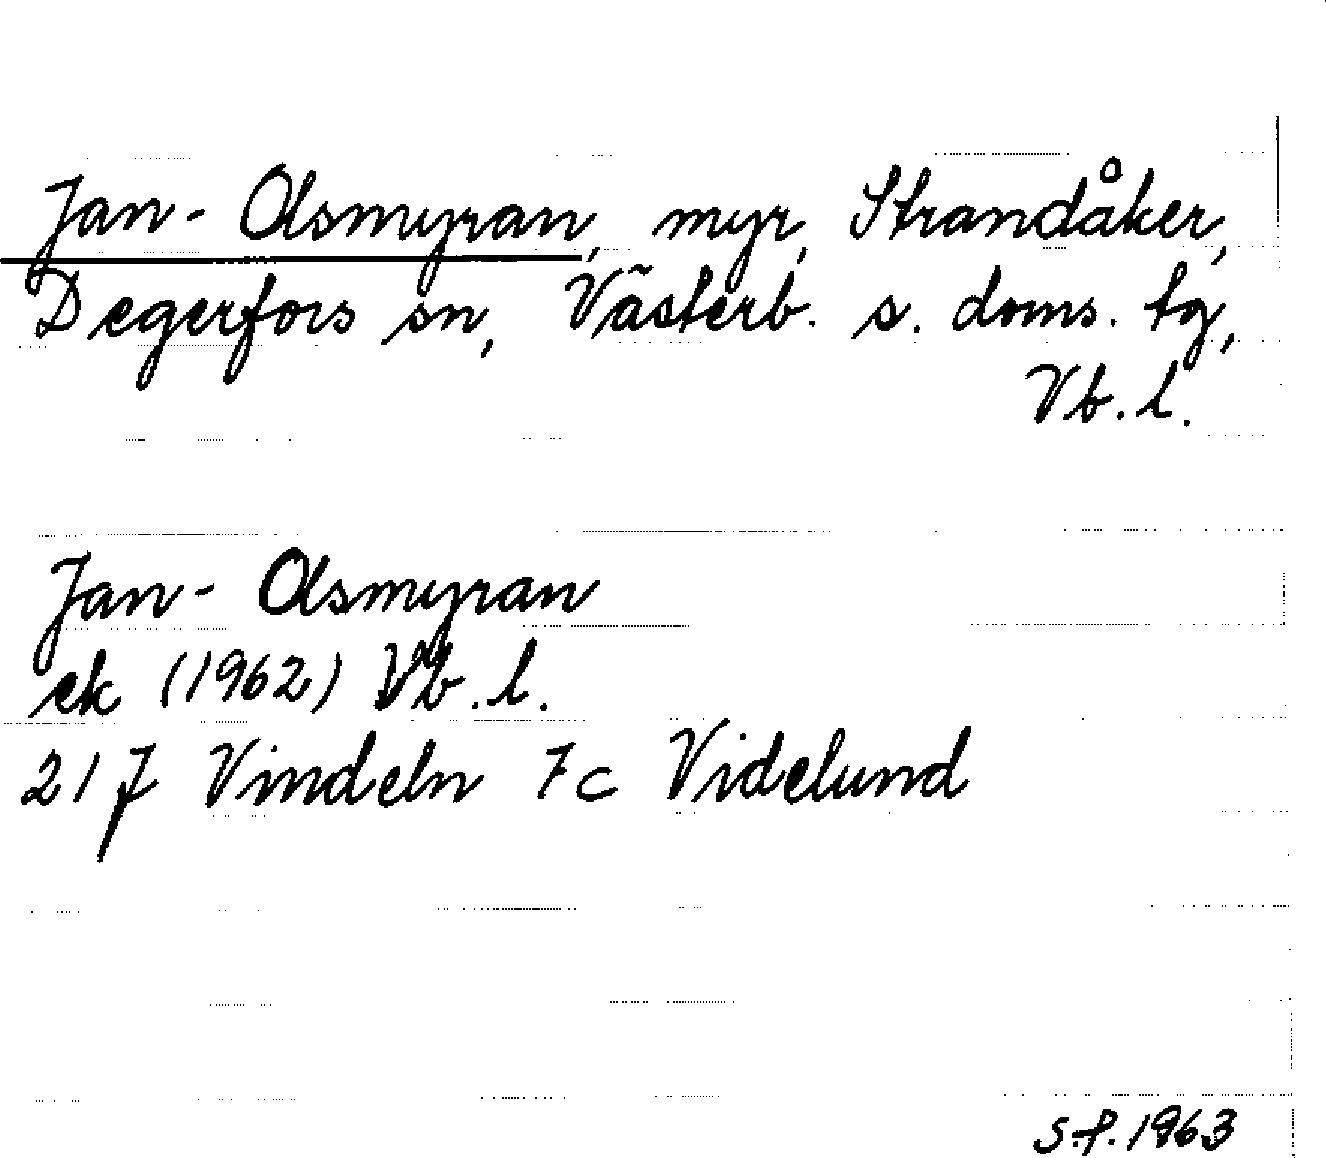 Jan-Olsmyran, myr, Strandåker,
Degerfors sn, Västerb. s. doms. tg,
Vb. l.
Jan-Olsmyran
ek (1962) Vb. l.
21 J Vindeln 7c Videlund
S.f. 1963